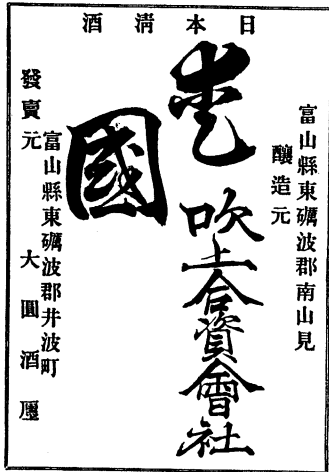 日本清酒
富山縣東礪波郡南山見
釀造元
吹上合資會社
國
發賣元
富山縣東礪波郡井波町
大圓酒